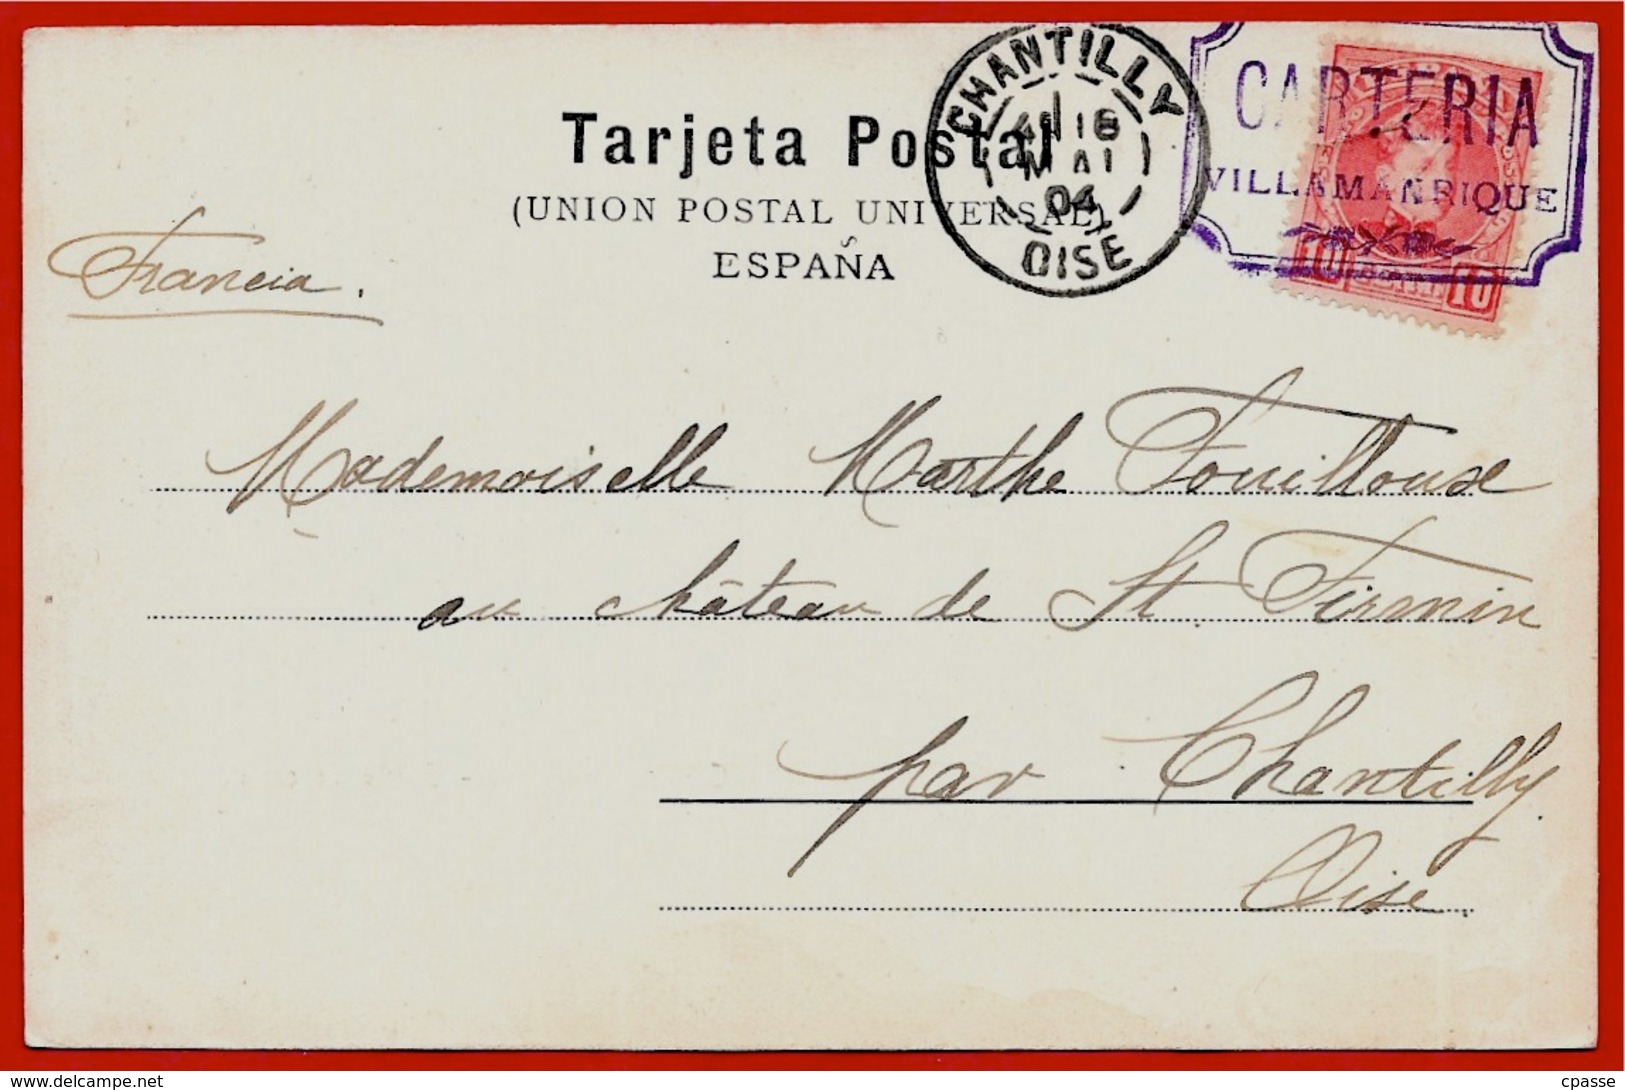 Tarjeta Postal
(UNION POSTAL UNIVERSAL)
ESPAÑA
CHANTILLY
MAI
04
OISE
CARTERIA
VILLAMANRIQUE
10 10
Francia.
Mademoiselle Marthe Fouilloux
au château de St Firmin
par Chantilly
Oise.
cpasse